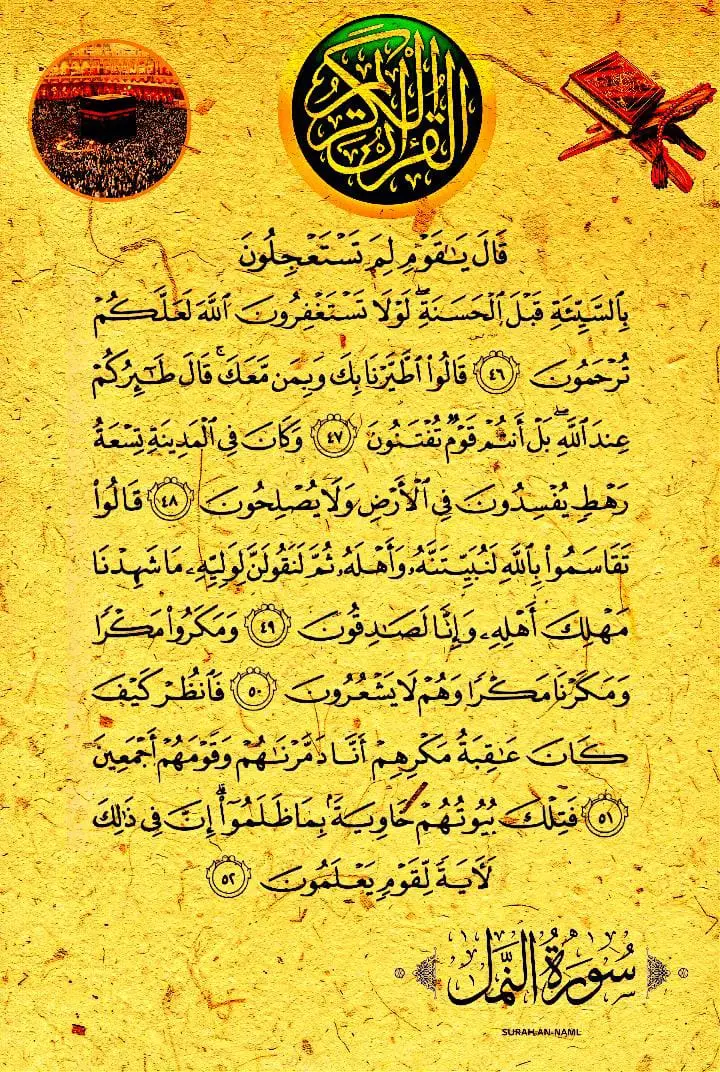 القرآن الكريم
قَالَ يَـٰقَوْمِ لِمَ تَسْتَعْجِلُونَ
بِٱلسَّيِّئَةِ قَبْلَ ٱلْحَسَنَةِ ۖ لَوْلَا تَسْتَغْفِرُونَ ٱللَّهَ لَعَلَّكُمْ
تُرْحَمُونَ ٤٦ قَالُوا۟ ٱطَّيَّرْنَا بِكَ وَبِمَن مَّعَكَ ۚ قَالَ طَـٰٓئِرُكُمْ
عِندَ ٱللَّهِ ۖ بَلْ أَنتُمْ قَوْمٌ تُفْتَنُونَ ٤٧ وَكَانَ فِى ٱلْمَدِينَةِ تِسْعَةُ
رَهْطٍ يُفْسِدُونَ فِى ٱلْأَرْضِ وَلَا يُصْلِحُونَ ٤٨ قَالُوا۟
تَقَاسَمُوا۟ بِٱللَّهِ لَنُبَيِّتَنَّهُۥ وَأَهْلَهُۥ ثُمَّ لَنَقُولَنَّ لِوَلِيِّهِۦ مَا شَهِدْنَا
مَهْلِكَ أَهْلِهِۦ وَإِنَّا لَصَـٰدِقُونَ ٤٩ وَمَكَرُوا۟ مَكْرًا
وَمَكَرْنَا مَكْرًا وَهُمْ لَا يَشْعُرُونَ ٥٠ فَٱنظُرْ كَيْفَ
كَانَ عَـٰقِبَةُ مَكْرِهِمْ أَنَّا دَمَّرْنَـٰهُمْ وَقَوْمَهُمْ أَجْمَعِينَ
٥١ فَتِلْكَ بُيُوتُهُمْ خَاوِيَةًۢ بِمَا ظَلَمُوٓا۟ ۗ إِنَّ فِى ذَٰلِكَ
لَـَٔايَةً لِّقَوْمٍ يَعْلَمُونَ ٥٢
سُورَةُ النَّمل
SURAH AN-NAML